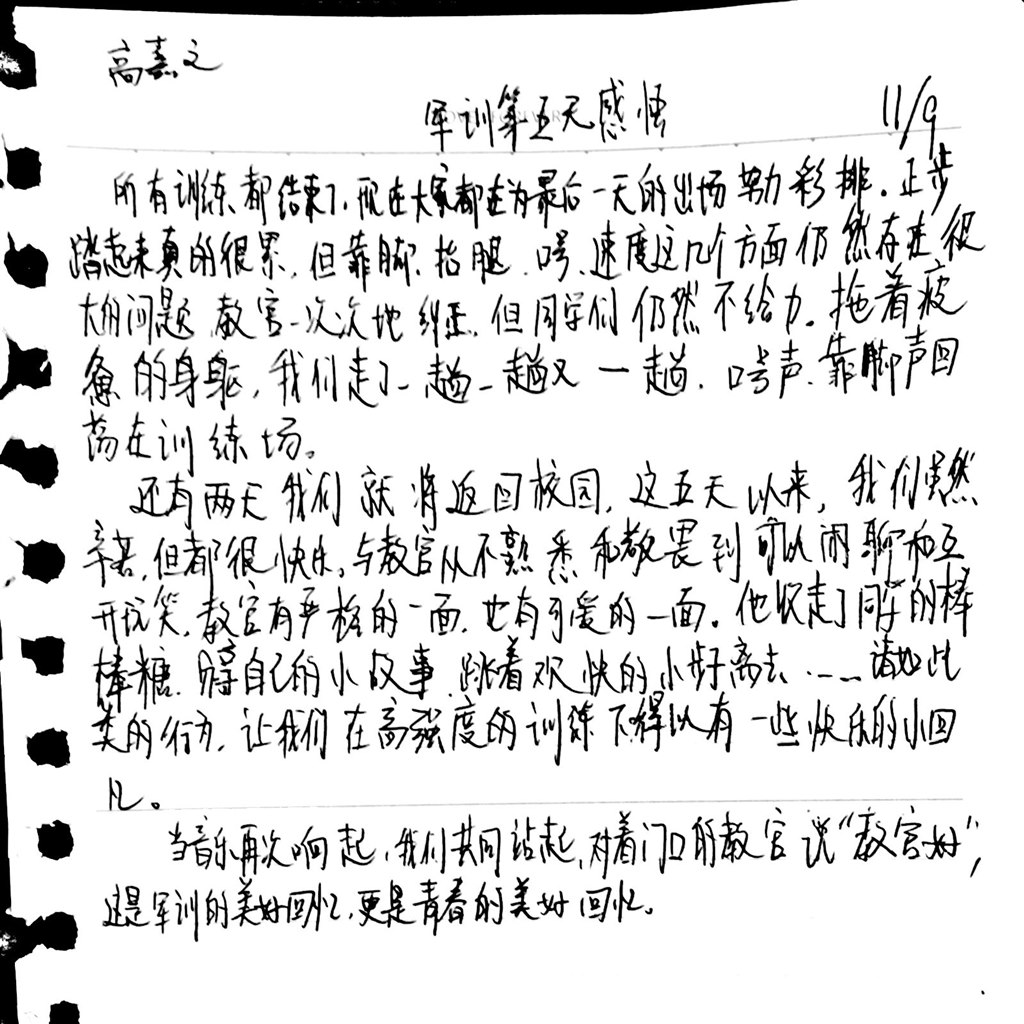 高熹之
军训第五天感悟 11/9
所有训练都结束了,现在大家都在为最后一天的出场努力彩排。正步
踏起来真的很累,但靠脚、抬腿、口号、速度这几个方面仍然存在很
大的问题 教官一次次地纠正,但同学们仍然不给力。拖着疲
惫的身躯,我们走了一趟一趟又一趟,口号声、靠脚声回
荡在训练场。
还有两天我们就将返回校园,这五天以来,我们虽然
辛苦,但都很快乐,与教官从不熟悉和敬畏到可以闲聊和互
开玩笑,教官有严格的一面,也有可爱的一面。他收走了同学的棒
棒糖、自己的小故事、跳着欢快的小步离去……诸如此
类的行为,让我们在高强度的训练下得以有一些快乐的小回
忆。
当音乐再次响起,我们共同站起,对着门口的教官说“教官好”,
这是军训的美好回忆,更是青春的美好回忆。